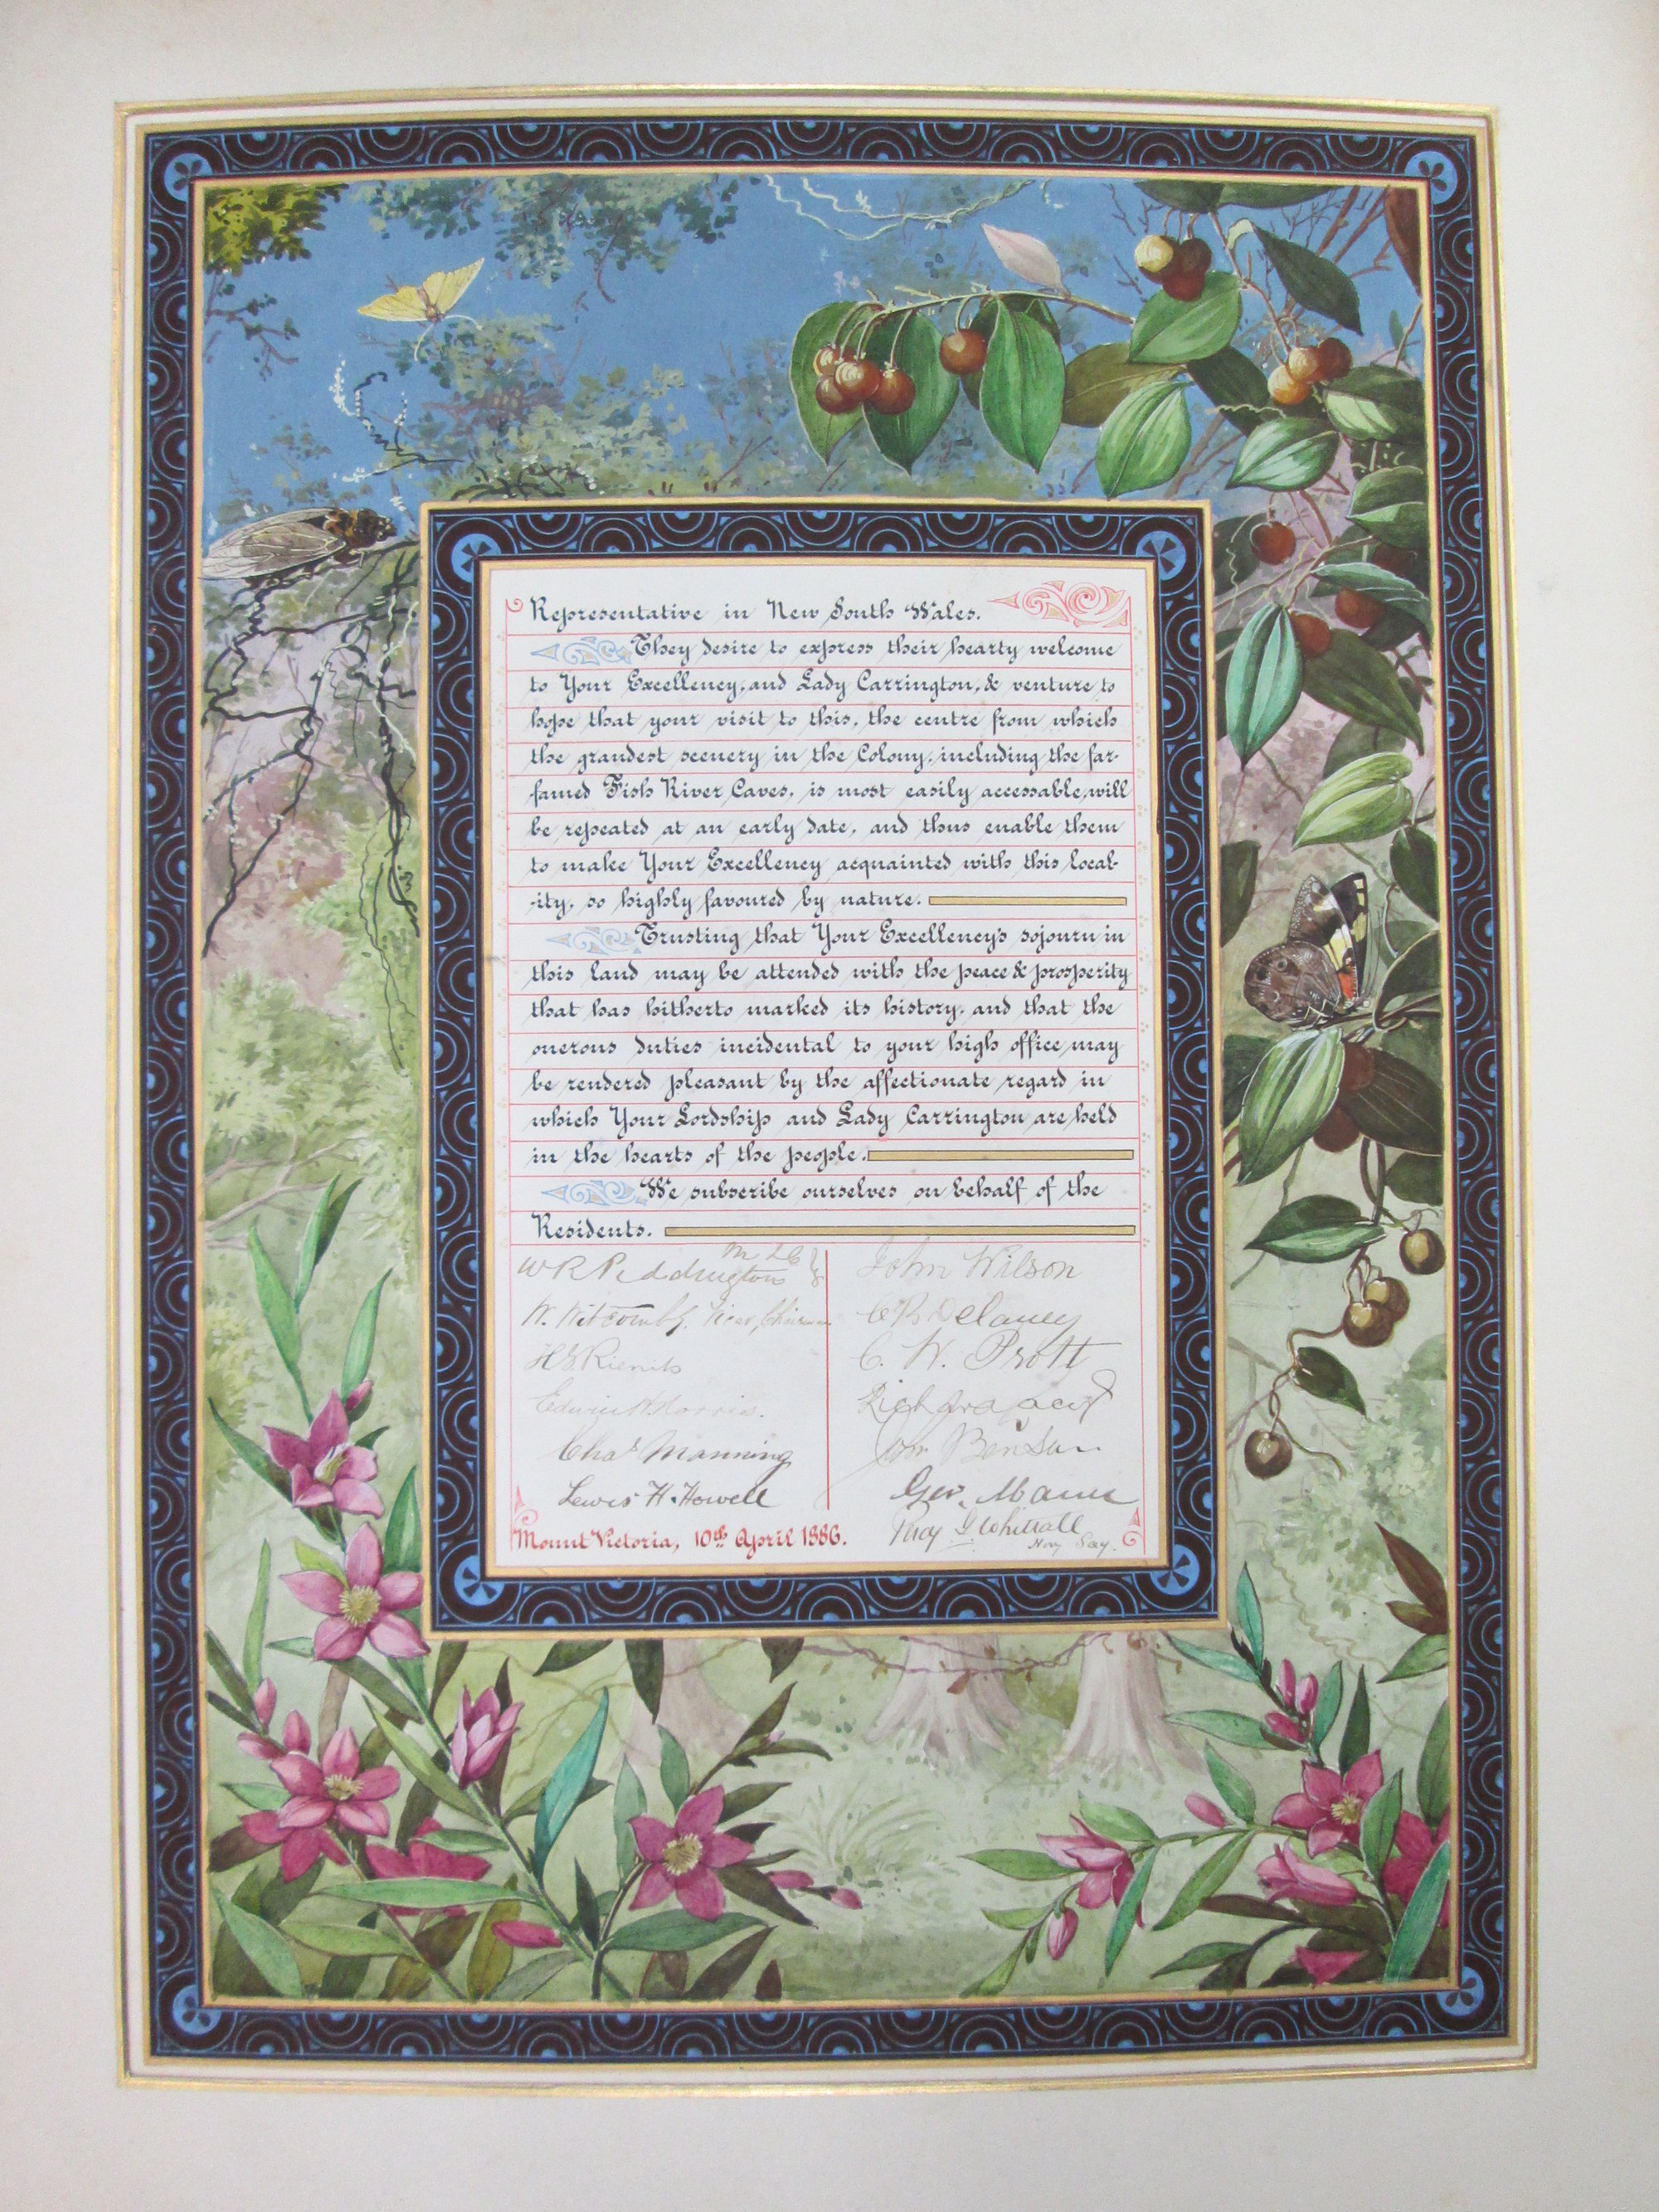 Representative in New South Wales.
They desire to express their hearty welcome
to Your Excellency, and Lady Carrington, & venture to
hope that your visit to this, the centre from which
the grandest scenery in the Colony, including the far-
famed Fish River Caves, is most easily accessable, will
be repeated at an early date, and thus enable them
to make Your Excellency acquainted with this local-
-ity, so highly favoured by nature.
Trusting that Your Excellency's sojourn in
this land may be attended with the peace & prosperity
that has hitherto marked its history, and that the
onerous duties incidental to your high office, may
be rendered pleasant by the affectionate regard in
which Your Lordship and Lady Carrington are held
in the hearts of the people.
We subscribe ourselves on behalf of the
Residents.
W R Piddington
John Wilson
C R Delaney
H S Rienits
C. W. Prott
Edwin H. Harris.
Chas Manning
Lewis H. Howell
Geo.
Whittall
Mount Victoria, 10th April 1886.
Hony Secy.